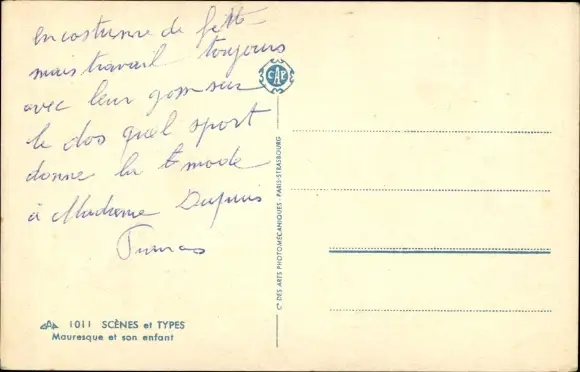 en costume de fête
mais travail toujours
avec leur goss sur
le dos quel sport
donne la mode
à Madame Dupuis
CAP
Cie DES ARTS PHOTOMÉCANIQUES - PARIS-STRASBOURG
CAP 1011 SCÈNES et TYPES
Mauresque et son enfant